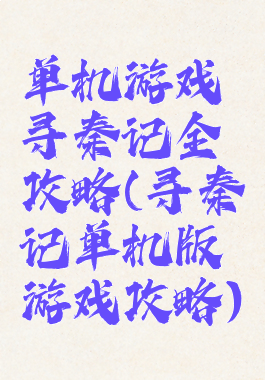 单机游戏
寻秦记全
攻略(寻秦
记单机版
游戏攻略)